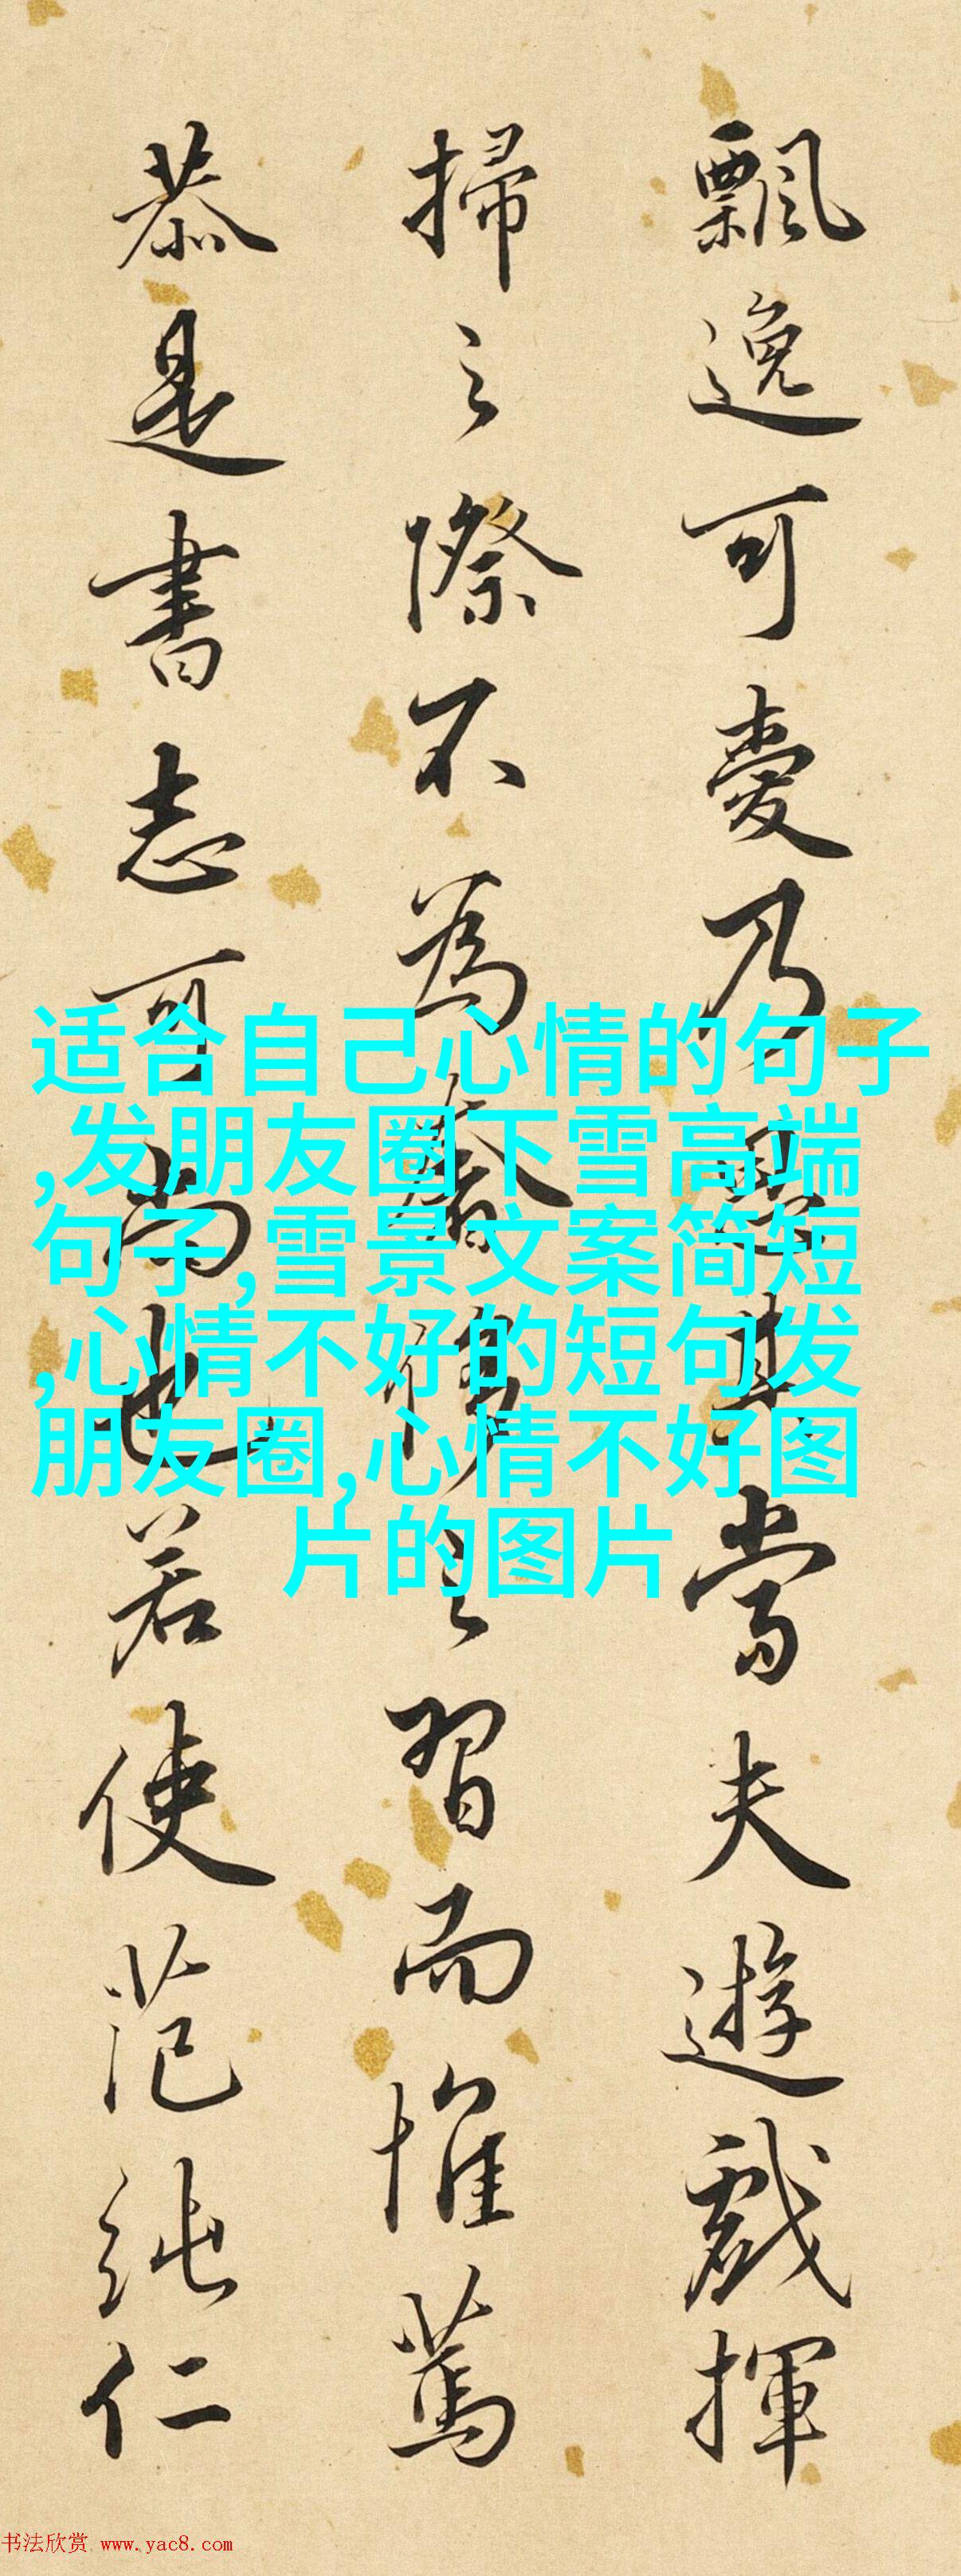 飄逸可愛乃
其當夫遊戲揮
掃之際不為
之習而惟篤
恭是書志可尚也若使范純仁
适合自己心情的句子
,发朋友圈下雪高端
句子,雪景文案简短
,心情不好的短句发
朋友圈,心情不好图
片的图片
书法欣赏 www.yac8.com